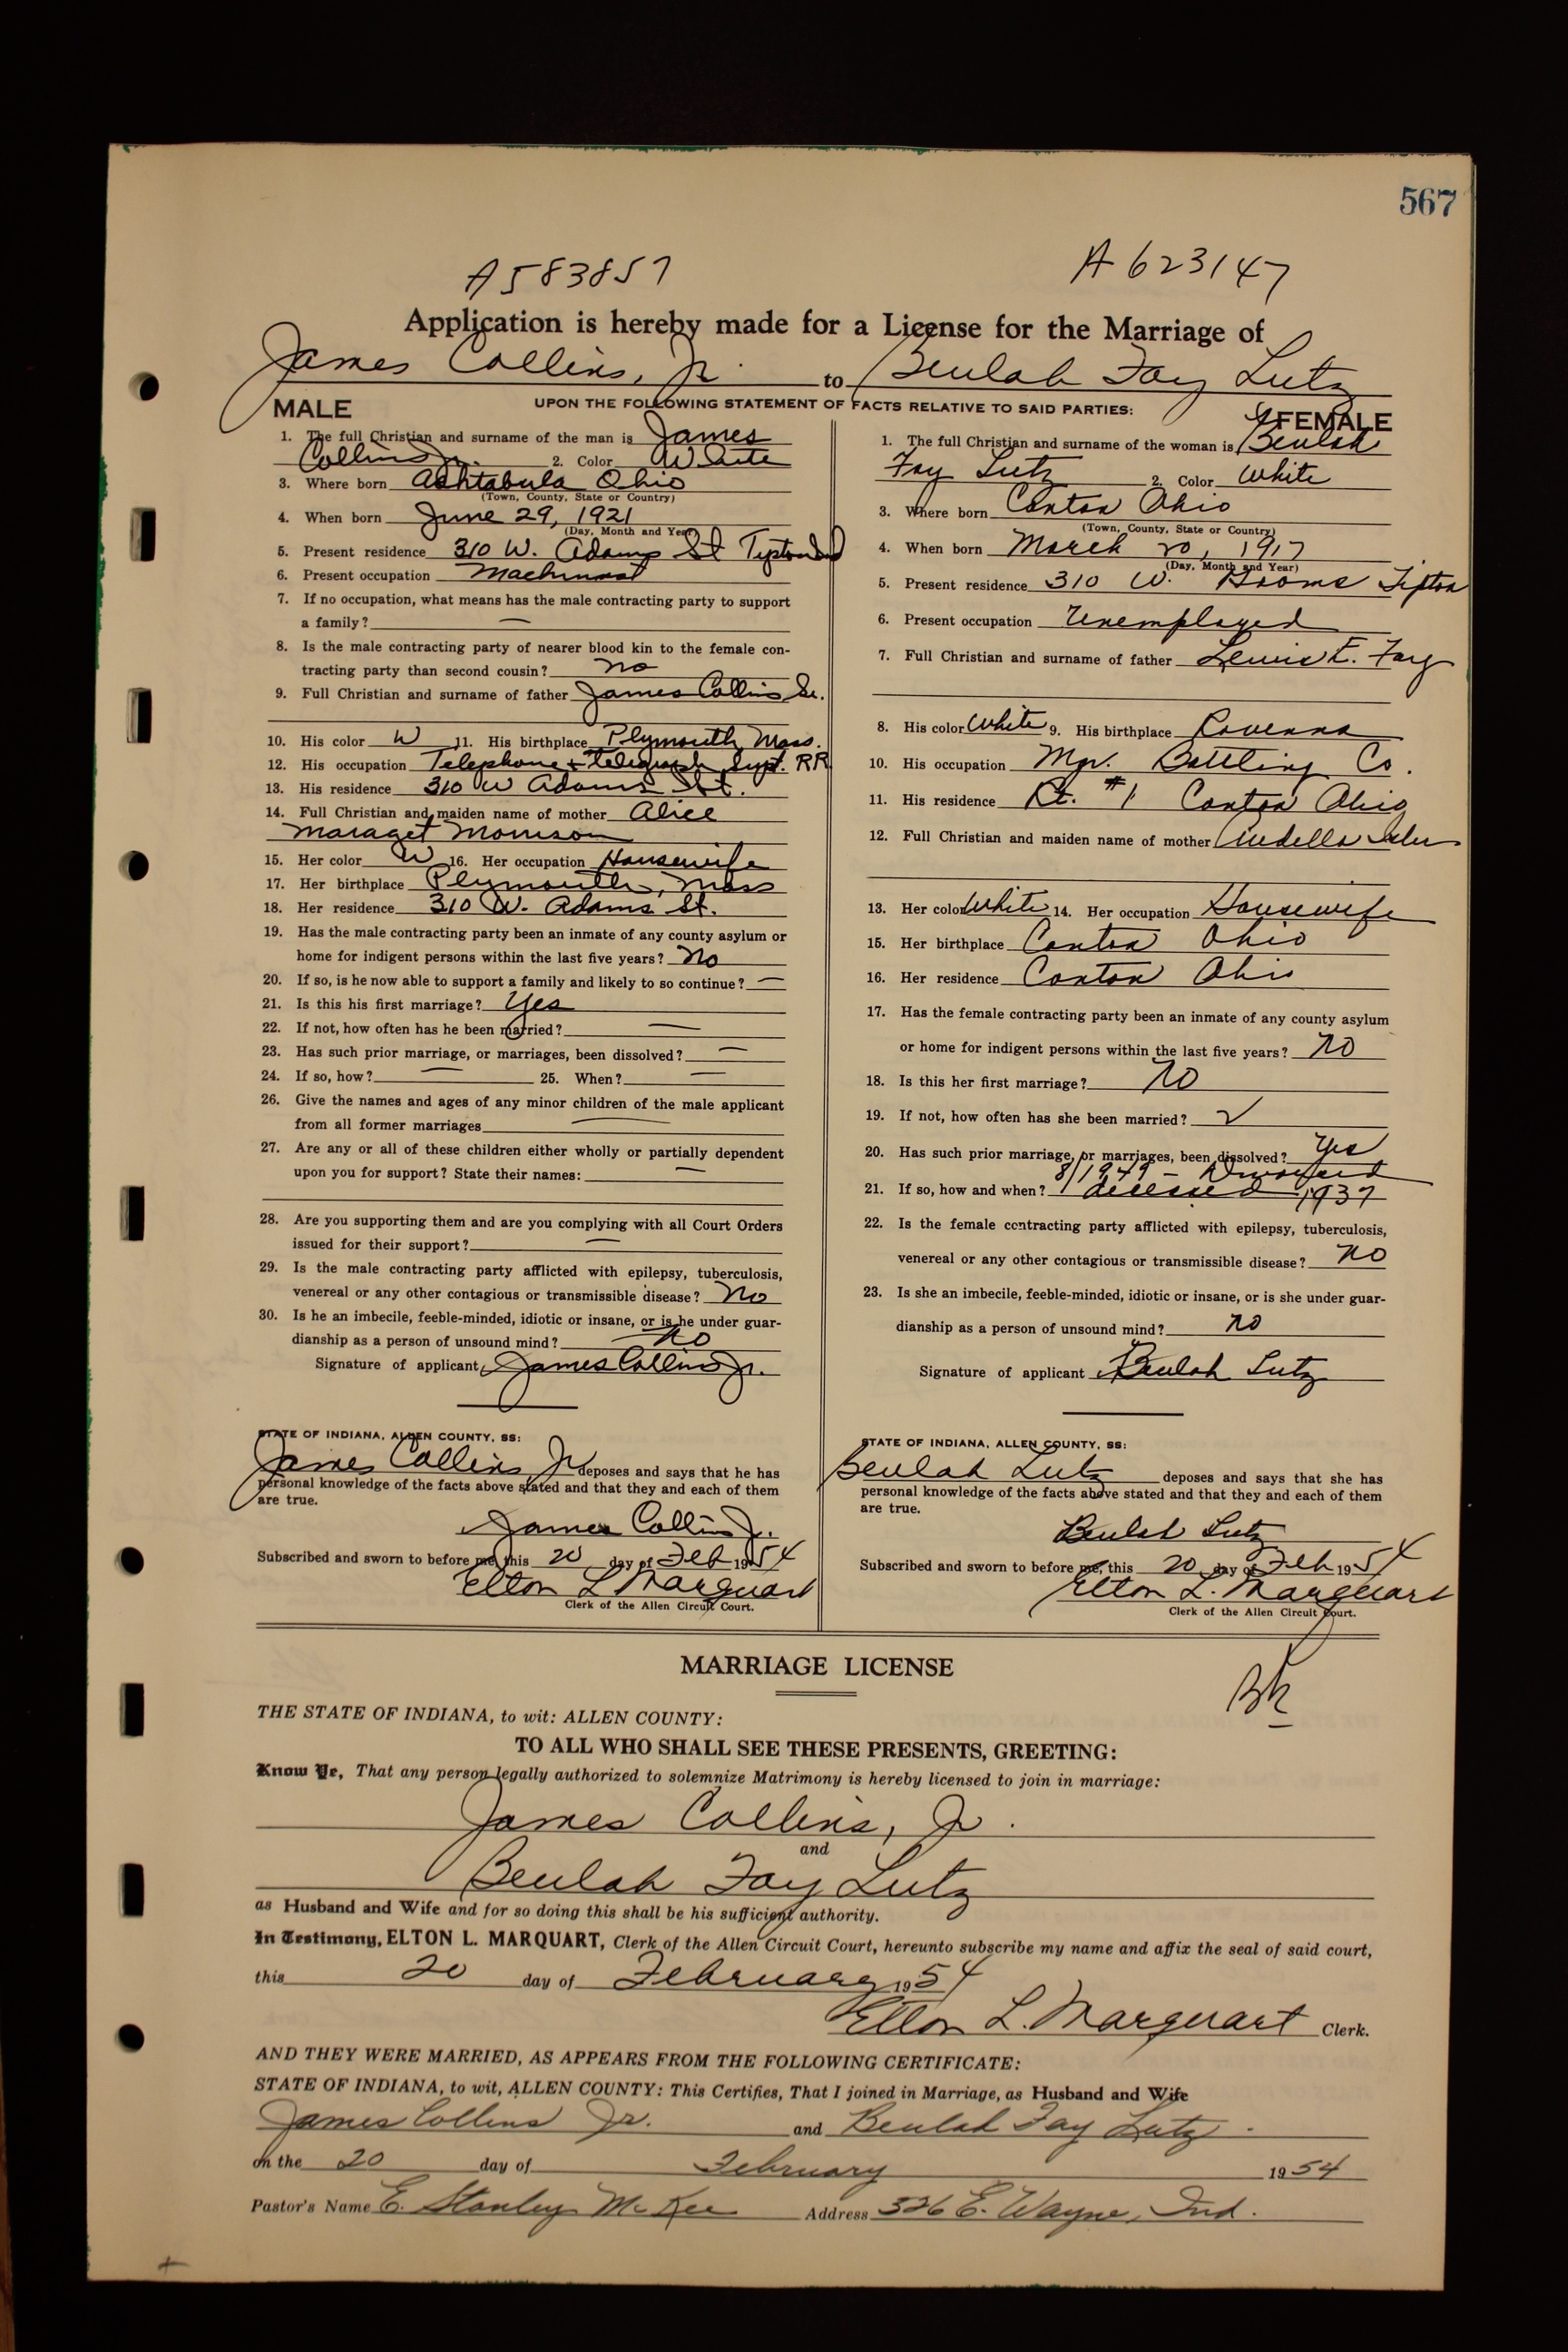 567
A583857 A623147
Application is hereby made for a License for the Marriage of
James Collins, Jr. to Beulah Fay Lutz
UPON THE FOLLOWING STATEMENT OF FACTS RELATIVE TO SAID PARTIES:
MALE
1. The full Christian and surname of the man is James
Collins Jr. 2. Color White
3. Where born Ashtabula Ohio
(Town, County, State or Country)
4. When born June 29, 1921
(Day, Month and Year)
5. Present residence 310 W. Adams St Tipton Ind
6. Present occupation Machinist
7. If no occupation, what means has the male contracting party to support
a family? —
8. Is the male contracting party of nearer blood kin to the female con-
tracting party than second cousin? no
9. Full Christian and surname of father James Collins Sr.
10. His color W 11. His birthplace Plymouth Mass.
12. His occupation Telephone + Telegraph Supt. RR
13. His residence 310 W Adams St.
14. Full Christian and maiden name of mother Alice
Maraget Morrison
15. Her color W 16. Her occupation Housewife
17. Her birthplace Plymouth, Mass
18. Her residence 310 W. Adams St.
19. Has the male contracting party been an inmate of any county asylum or
home for indigent persons within the last five years? No
20. If so, is he now able to support a family and likely to so continue? —
21. Is this his first marriage? Yes
22. If not, how often has he been married? —
23. Has such prior marriage, or marriages, been dissolved? —
24. If so, how? — 25. When? —
26. Give the names and ages of any minor children of the male applicant
from all former marriages —
27. Are any or all of these children either wholly or partially dependent
upon you for support? State their names: —
28. Are you supporting them and are you complying with all Court Orders
issued for their support? —
29. Is the male contracting party afflicted with epilepsy, tuberculosis,
venereal or any other contagious or transmissible disease? No
30. Is he an imbecile, feeble-minded, idiotic or insane, or is he under guar-
dianship as a person of unsound mind? no
Signature of applicant, James Collins Jr.
STATE OF INDIANA, ALLEN COUNTY, SS:
James Collins Jr deposes and says that he has
personal knowledge of the facts above stated and that they and each of them
are true.
James Collins Jr.
Subscribed and sworn to before me, this 20 day of Feb 1954
Elton L Marquart
Clerk of the Allen Circuit Court.
FEMALE
1. The full Christian and surname of the woman is Beulah
Fay Lutz 2. Color White
3. Where born Canton Ohio
(Town, County, State or Country)
4. When born March 20, 1917
(Day, Month and Year)
5. Present residence 310 W. Tipton
6. Present occupation Unemployed
7. Full Christian and surname of father Lewis E. Fay
8. His color White 9. His birthplace Ravenna
10. His occupation Mgr. Bottling Co.
11. His residence Rt. #1 Canton Ohio
12. Full Christian and maiden name of mother
13. Her color White 14. Her occupation Housewife
15. Her birthplace Canton Ohio
16. Her residence Canton Ohio
17. Has the female contracting party been an inmate of any county asylum
or home for indigent persons within the last five years? no
18. Is this her first marriage? no
19. If not, how often has she been married? 2
20. Has such prior marriage, or marriages, been dissolved? Yes
8/1949 - Divorced
21. If so, how and when? deceased 1937
22. Is the female contracting party afflicted with epilepsy, tuberculosis,
venereal or any other contagious or transmissible disease? no
23. Is she an imbecile, feeble-minded, idiotic or insane, or is she under guar-
dianship as a person of unsound mind? no
Signature of applicant Beulah Lutz
STATE OF INDIANA, ALLEN COUNTY, SS:
Beulah Lutz deposes and says that she has
personal knowledge of the facts above stated and that they and each of them
are true.
Beulah Lutz
Subscribed and sworn to before me, this 20 day of Feb 1954
Elton L. Marquart
Clerk of the Allen Circuit Court.
MARRIAGE LICENSE
THE STATE OF INDIANA, to wit: ALLEN COUNTY:
TO ALL WHO SHALL SEE THESE PRESENTS, GREETING:
Know Ye, That any person legally authorized to solemnize Matrimony is hereby licensed to join in marriage:
James Collins, Jr.
and
Beulah Fay Lutz
as Husband and Wife and for so doing this shall be his sufficient authority.
In Testimony, ELTON L. MARQUART, Clerk of the Allen Circuit Court, hereunto subscribe my name and affix the seal of said court,
this 20 day of February 1954
Elton L. Marquart Clerk.
AND THEY WERE MARRIED, AS APPEARS FROM THE FOLLOWING CERTIFICATE:
STATE OF INDIANA, to wit, ALLEN COUNTY: This Certifies, That I joined in Marriage, as Husband and Wife
James Collins Jr. and Beulah Fay Lutz.
on the 20 day of February 1954
Pastor's Name E. Stanley McKee Address 326 E. Wayne, Ind.